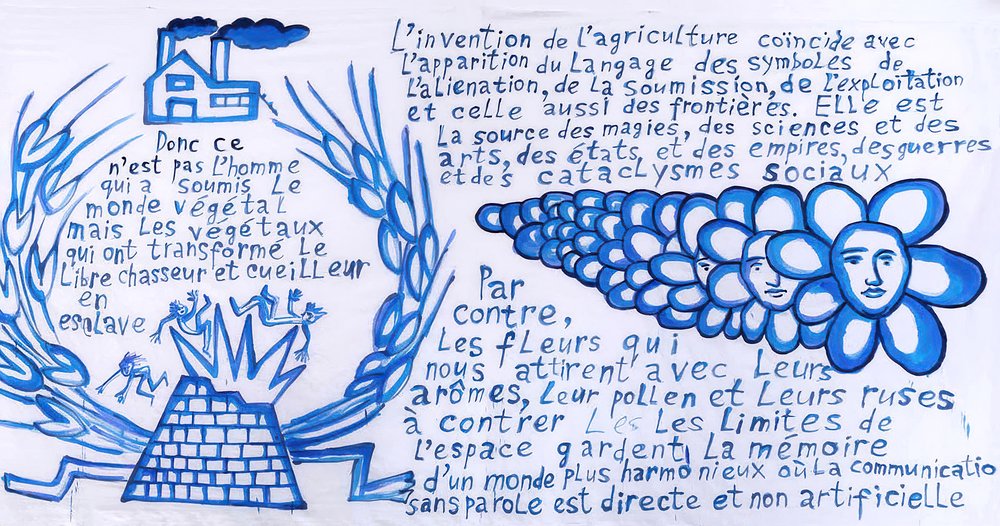 Donc ce
n'est pas l'homme
qui a soumis le
monde végétal
mais les végétaux
qui ont transformé le
libre chasseur et cueilleur
en
esclave
L'invention de l'agriculture coïncide avec
l'apparition du langage des symboles de
l'aliénation, de la soumission, de l'exploitation
et celle aussi des frontières. Elle est
la source des magies, des sciences et des
arts, des états, et des empires, des guerres
et des cataclysmes sociaux
Par
contre,
les fleurs qui
nous attirent avec leurs
arômes, leur pollen et leurs ruses
à contrer les les limites de
l'espace gardent la mémoire
d'un monde plus harmonieux où la communicatio
sans parole est directe et non artificielle